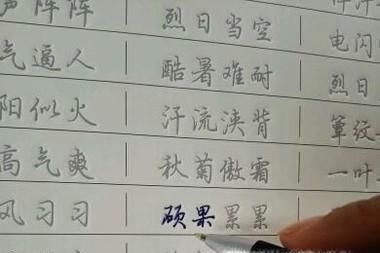 声阵阵 烈日当空
气逼人 酷暑难耐 电闪
阳似火 汗流浃背 烈日
高气爽 秋菊傲霜 簟纹
风习习 硕果累累 一叶